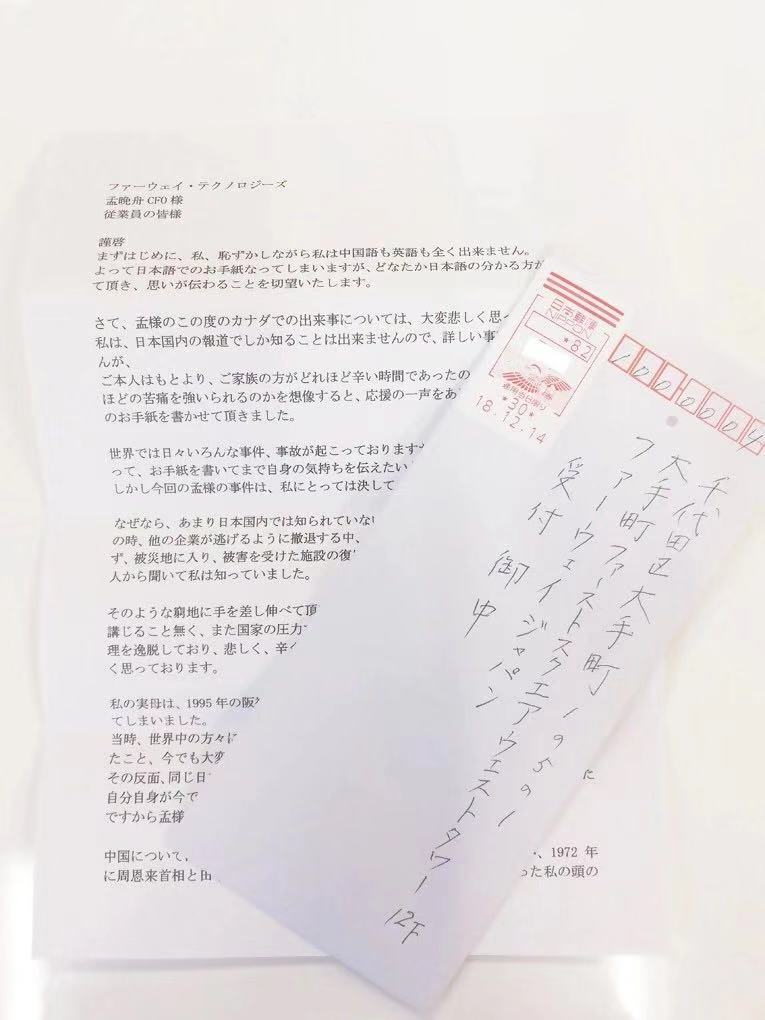 ファーウェイ・テクノロジーズ
孟晩舟 CFO 様
従業員の皆様
謹啓
まずはじめに、私、恥ずかしながら私は中国語も英語も全く出来ません。
よって日本語でのお手紙なってしまいますが、どなたか日本語の分かる方が
て頂き、思いが伝わることを切望いたします。
さて、孟様のこの度のカナダでの出来事については、大変悲しく思
私は、日本国内の報道でしか知ることは出来ませんので、詳しい事
んが、
ご本人はもとより、ご家族の方がどれほど辛い時間であったの
ほどの苦痛を強いられるのかを想像すると、応援の一声をあ
のお手紙を書かせて頂きました。
世界では日々いろんな事件、事故が起こっております
って、お手紙を書いてまで自身の気持ちを伝えたい
しかし今回の孟様の事件は、私にとっては決して
なぜなら、あまり日本国内では知られていな
の時、他の企業が逃げるように撤退する中、
ず、被災地に入り、被害を受けた施設の復
人から聞いて私は知っていました。
そのような窮地に手を差し伸べて頂
講じること無く、また国家の圧力
理を逸脱しており、悲しく、辛く
く思っております。
私の実母は、1995 年の阪
てしまいました。
当時、世界中の方々に
たこと、今でも大変
その反面、同じ日
自分自身が今で
ですから孟様
に
中国について、
、1972 年
に周恩来首相と田
った私の頭の
日本郵便
NIPPON
*82
*30*
18.12.14
1000004
千代田区大手町1の5の1
大手町ファーストスクエアウエストタワー12F
ファーウェイジャパン
受付 御中